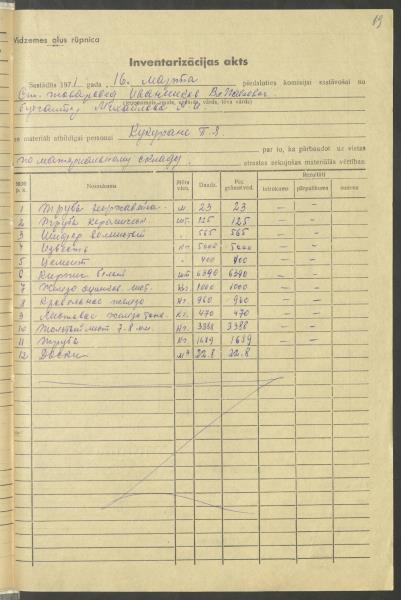 19
Vidzemes alus rūpnīca
Inventarizācijas akts
Sastādīts 1971 gada 16. марта piedaloties komisijai sastāvošai no
Ст. товаровед Иванников
бухгалтер Михайлова
(ieņemamais amats, uzvārds, vārds, tēva vārds)
es materiāli atbildīgai personai П. Я
par to, ka pārbaudot uz vietas
по материальному складу atrastas sekojošas materiālās vērtības:
p. k. Nosaukums Mēra vien. Daudz. Pēc grāmatved. Rezultāti
iztrūkums pārpalikums summa
1 Труба м 23 23 — —
2 Труба керамичес. шт. 125 125 — —
3 Шифер волнистый " 565 565 — —
4 Известь кг. 5000 5000 — —
5 Цемент " 400 400 — —
6 Кирпич белый шт 6390 6390 — —
7 Железо оцинков. лист. кг. 1000 1000 — —
8 Кровельное железо кг. 960 960 — —
9 Листовое железо тонк. кг. 470 470 — —
10 Толстый лист 7-8 мм. кг. 3388 3388 — —
11 Труба кг. 1689 1689 — —
12 Доски м³ 22.8 22.8